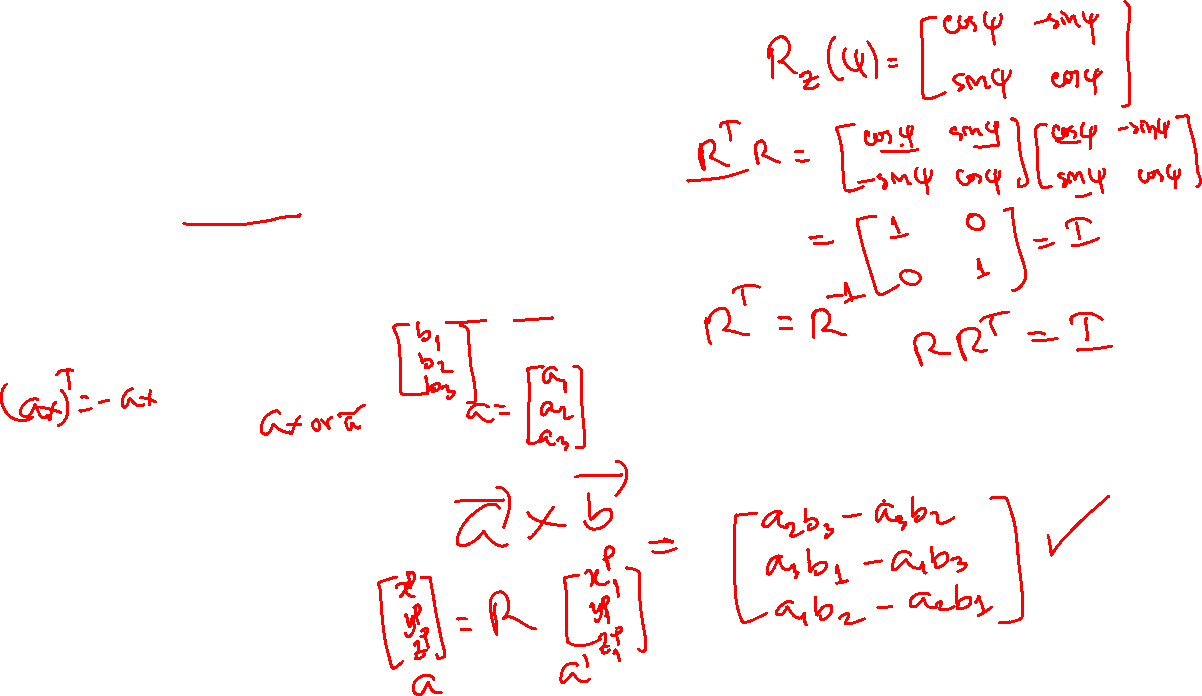 R_z(ψ) = [cosψ -sinψ; sinψ cosψ]
R^T R = [cosψ sinψ; -sinψ cosψ] [cosψ -sinψ; sinψ cosψ]
= [1 0; 0 1] = I
R^T = R^-1
R R^T = I
[b1; b2; b3]
(a×)^T = -a×
a× or ã
a = [a1; a2; a3]
a⃗ × b⃗ = [a2b3 - a3b2; a3b1 - a1b3; a1b2 - a2b1] ✓
[x^p; y^p; z^p] = R [x1^p; y1^p; z1^p]
a a'